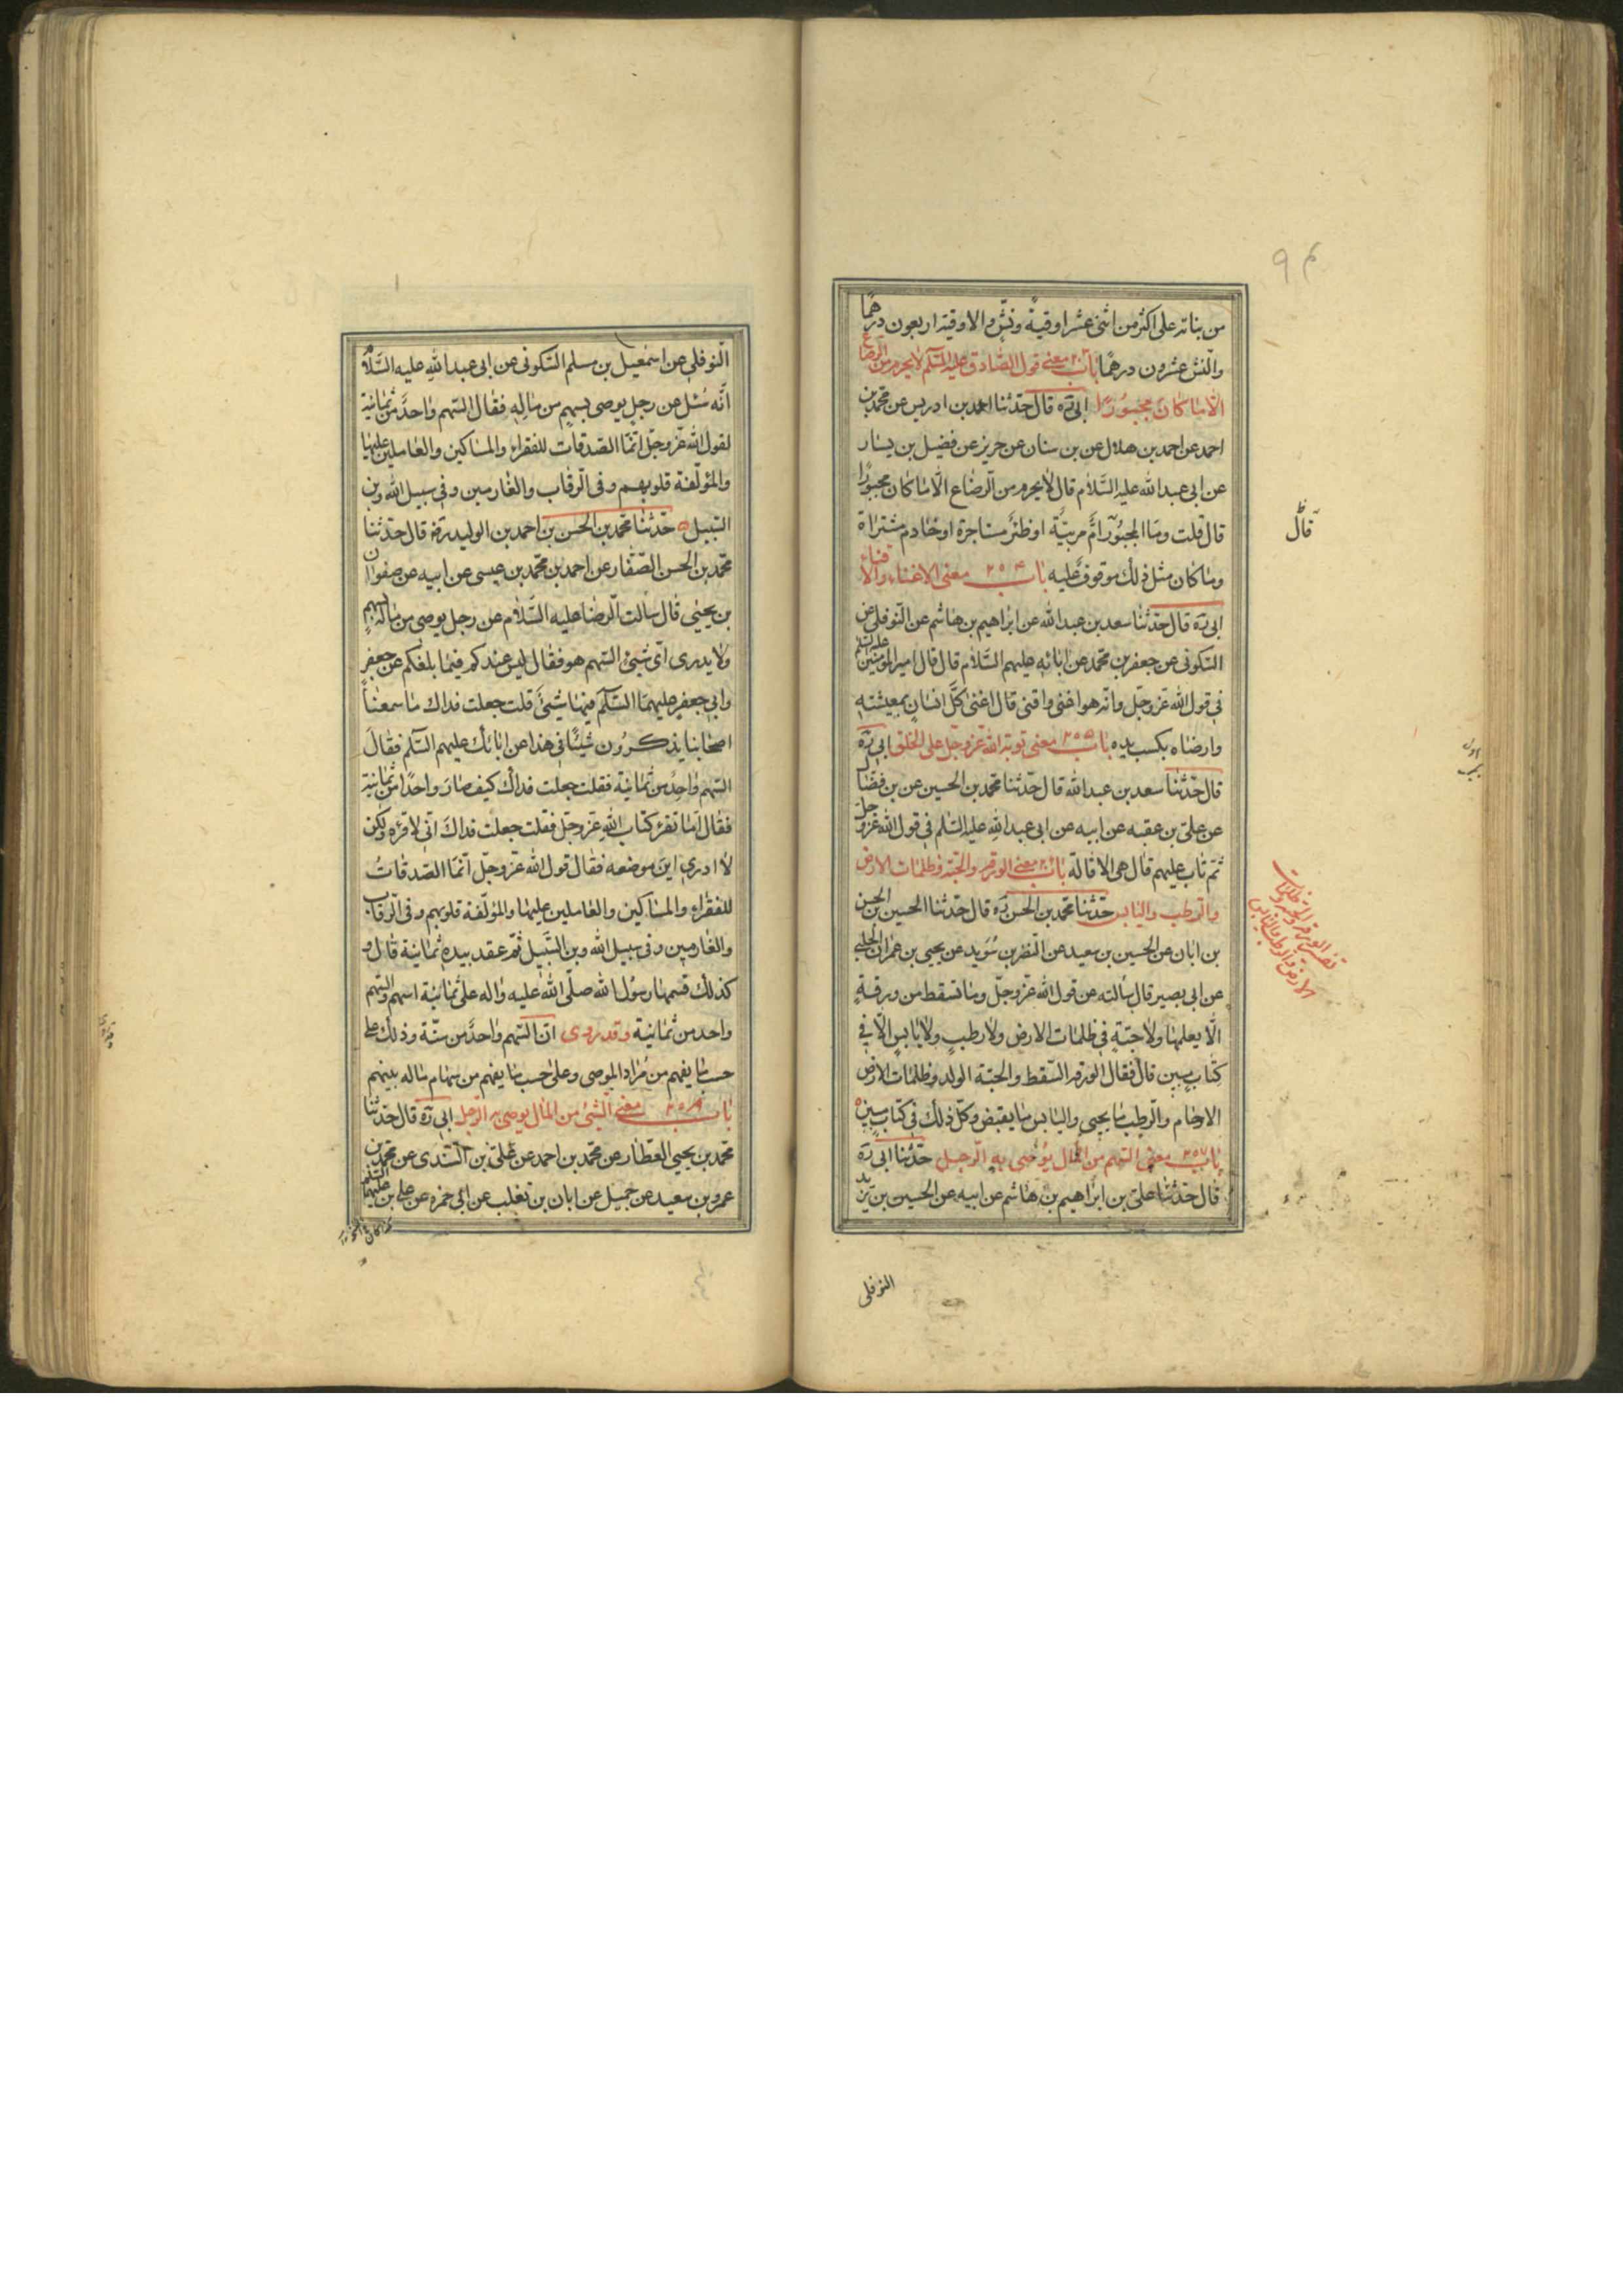 من بناته على اكثر من اثنى عشر اوقية ونشّ والاوقية اربعون درهمًا
والنش عشرون درهمًا باب ٢٥٣ معنى قول الصادق عليه السلم لا يحرم من الرضاع
الّا ما كان مجبورًا ابى ره قال حدّثنا احمد بن ادريس عن محمد بن
احمد عن احمد بن هلال عن بن سنان عن حريز عن فضيل بن يسار
عن ابى عبد الله عليه السّلام قال لا يحرم من الرّضاع الّا ما كان مجبورًا
قال قلت وما المجبور امّ مربيّة او ظئر مستاجرة او خادم مشتراة
وما كان مثل ذلك موقوف عليه باب ٢٥٤ معنى الاغناء والاقناء
ابى ره قال حدّثنا سعد بن عبد الله عن ابراهيم بن هاشم عن النّوفلى عن
السّكونى عن جعفر بن محمد عن ابائه عليهم السّلام قال قال امير المؤمنين عليه السلم
فى قول الله عزّ وجلّ وانّه هو اغنى واقنى قال اغنى كلّ انسان بمعيشته
وارضاه بكسب يده باب ٢٥٥ معنى توبة الله عزّ وجلّ على الخلق ابى ره
قال حدّثنا سعد بن عبد الله قال حدّثنا محمد بن الحسين عن بن فضال
عن علىّ بن عقبه عن ابيه عن ابى عبد الله عليه السّلم فى قول الله عزّ وجلّ
ثمّ تاب عليهم قال هى الاقالة باب معنى الورقة والحبّة وظلمات الارض
والرّطب واليابس حدّثنا محمد بن الحسن ره قال حدّثنا الحسين بن الحسن
بن ابان عن الحسين بن سعيد عن النّضر بن سُويد عن يحيى بن عمران الحلبى
عن ابى بصير قال سألته عن قول الله عزّ وجلّ وما تسقط من ورقةٍ
الّا يعلمها ولا حبّةٍ فى ظلمات الارض ولا رطبٍ ولا يابسٍ الّا فى
كتاب مبين قال فقال الورقة السّقط والحبّة الولد وظلمات الارض
الارحام والرّطب ما يحيى واليابس ما يقبض وكلّ ذلك فى كتاب مبين
باب ٢٥٧ معنى السّهم من المال يُوصى به الرّجل حدّثنا ابى ره
قال حدّثنا علىّ بن ابراهيم بن هاشم عن ابيه عن الحسين بن يزيد
النوفلى
قال
تفسير الورقة والحبّة وظلمات
الارض والرطب واليابس
النّوفلى عن اسمعيل بن مسلم السّكونى عن ابى عبد الله عليه السّلام
انّه سُئل عن رجل يوصى بسهمٍ من مالِه فقال السّهم واحدٌ من ثمانية
لقول الله عزّ وجلّ انّما الصّدقات للفقراء والمساكين والعاملين عليها
والمؤلّفة قلوبهم وفى الرّقاب والغارمين وفى سبيل الله وبن
السّبيل حدّثنا محمد بن الحسن بن احمد بن الوليد ره قال حدّثنا
محمّد بن الحسن الصّفّار عن احمد بن محمّد بن عيسى عن ابيه عن صفوان
بن يحيى قال سألت الرّضا عليه السّلام عن رجل يوصى من ماله بسهمٍ
ولا يدرى اىّ شئ السّهم هو فقال ليس عندكم فيما بلغكم عن جعفرٍ
وابى جعفرٍ عليهما السّلم فيها شئ قلت جعلت فداك ما سمعنا
اصحابنا يذكرُون شيئًا فى هذا عن ابائك عليهم السّلم فقال
السّهم واحِدٌ من ثمانية فقلت جعلت فداك كيف صار واحدًا من ثمانية
فقال اما تقرئ كتاب الله عزّ وجلّ فقلت جعلت فداك انّى لاقرئه ولكن
لا ادرى اين موضعه فقال قول الله عزّ وجلّ انّما الصّدقاتُ
للفقراء والمساكين والعاملين عليها والمؤلّفة قلوبهم وفى الرقاب
والغارمين وفى سبيل الله وبن السَّبيل ثمّ عقد بيده ثمانية قال و
كذلك قسمها رسُول الله صلّى الله عليه واله على ثمانية اسهم والسّهم
واحد من ثمانية وقد روى انّ السّهم واحدٌ من ستّة وذلك على
حسب ما يفهم من مُراد الموصى وعلى حسب ما يفهم من سهام ماله بينهم
باب ٢٥٨ معنى الشّئ من المال يوصى به الرّجل ابى ره قال حدّثنا
محمّد بن يحيى العطّار عن محمّد بن احمد عن علىّ بن السّندى عن محمّد بن
عمرو بن سعيد عن جميل عن ابان بن تغلب عن ابى حمزه عن على بن عليهما السلم